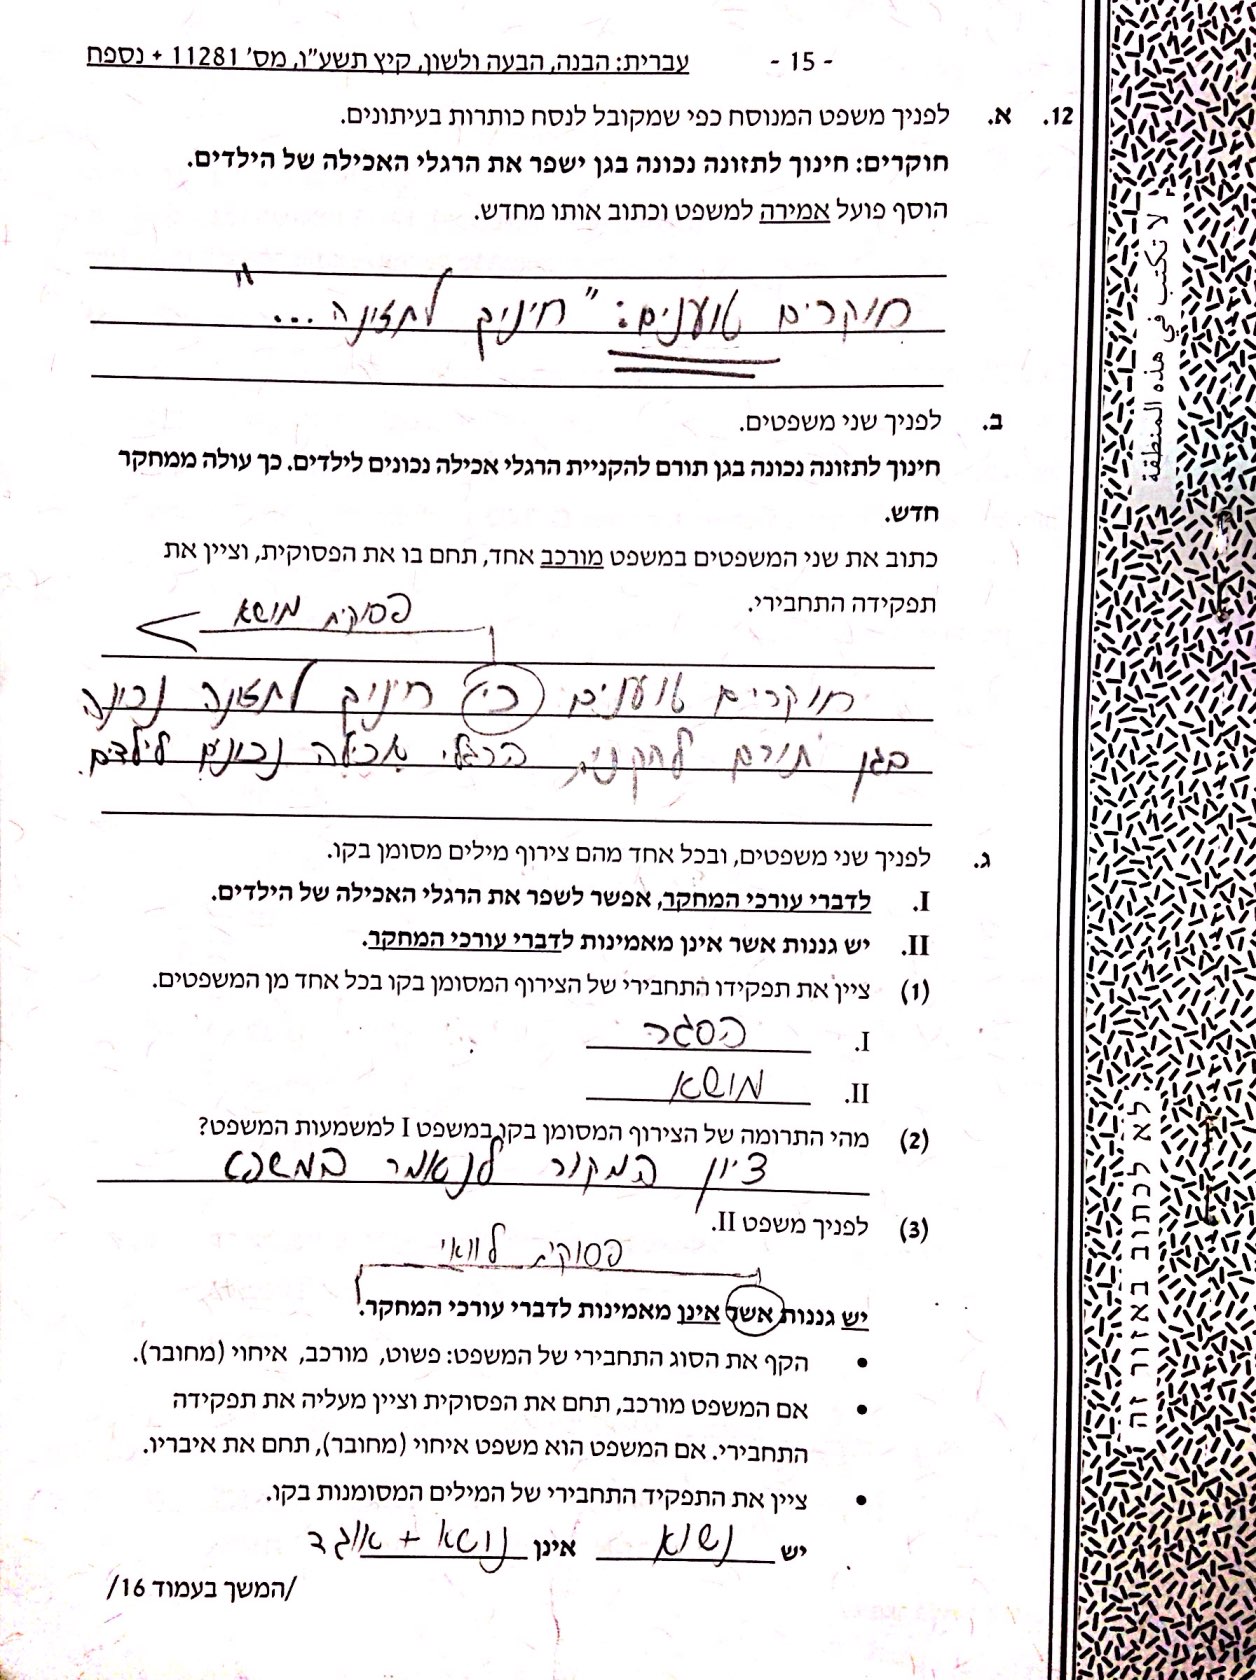 עברית: הבנה, הבעה ולשון, קיץ תשע"ו, מס' 11281 + נספח
- 15 -
12. א. לפניך משפט המנוסח כפי שמקובל לנסח כותרות בעיתונים.
חוקרים: חינוך לתזונה נכונה בגן ישפר את הרגלי האכילה של הילדים.
הוסף פועל אמירה למשפט וכתוב אותו מחדש.
חוקרים טוענים: "חינוך לתזונה ..."
ב. לפניך שני משפטים.
חינוך לתזונה נכונה בגן תורם להקניית הרגלי אכילה נכונים לילדים. כך עולה ממחקר
חדש.
כתוב את שני המשפטים במשפט מורכב אחד, תחם בו את הפסוקית, וציין את
תפקידה התחבירי.
פסוקית מושא
חוקרים טוענים כי חינוך לתזונה נכונה
בגן תורם להקניית הרגלי אכילה נכונים לילדים.
ג. לפניך שני משפטים, ובכל אחד מהם צירוף מילים מסומן בקו.
I. לדברי עורכי המחקר, אפשר לשפר את הרגלי האכילה של הילדים.
II. יש גננות אשר אינן מאמינות לדברי עורכי המחקר.
(1) ציין את תפקידו התחבירי של הצירוף המסומן בקו בכל אחד מן המשפטים.
I. הסגר
II. מושא
(2) מהי התרומה של הצירוף המסומן בקו במשפט I למשמעות המשפט?
ציון המקור לנאמר במשפט
(3) לפניך משפט II.
פסוקית לוואי
יש גננות אשר אינן מאמינות לדברי עורכי המחקר.
• הקף את הסוג התחבירי של המשפט: פשוט, מורכב, איחוי (מחובר).
• אם המשפט מורכב, תחם את הפסוקית וציין מעליה את תפקידה
התחבירי. אם המשפט הוא משפט איחוי (מחובר), תחם את איבריו.
• ציין את התפקיד התחבירי של המילים המסומנות בקו.
יש נשוא אינן נושא + אוגד
/המשך בעמוד 16/
لا تكتب في هذه المنطقة
לא לכתוב באזור זה